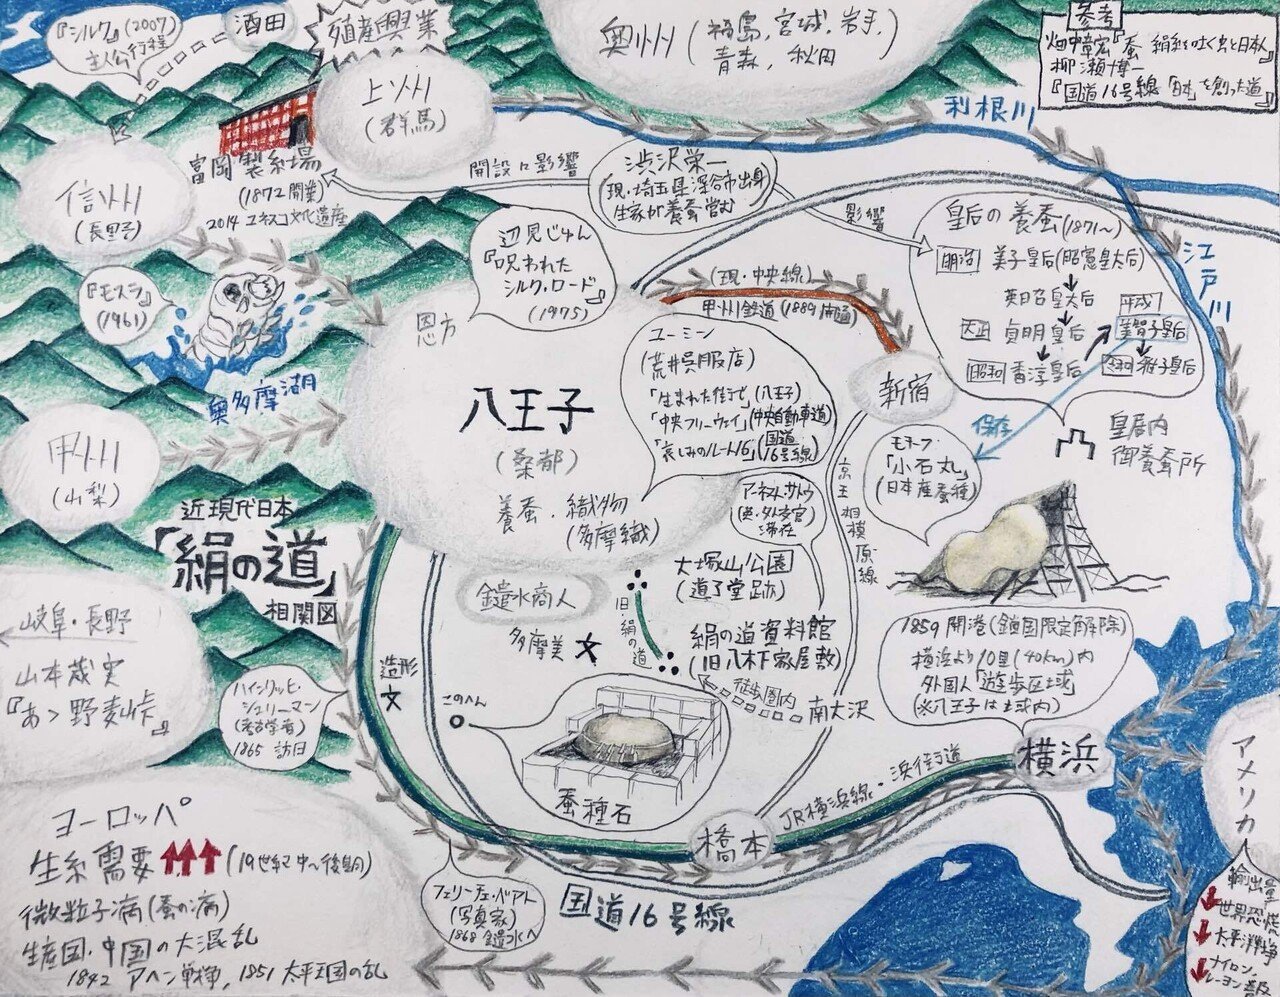 『シルク』(2007)
主人公行程
酒田
殖産興業
上州
(群馬)
奥州(福島, 宮城, 岩手,
青森, 秋田
参考
畑中章宏『蚕 絹糸を吐く虫と日本人』
柳瀬博一
『国道16号線「日本」を創った道』
利根川
江戸川
信州
(長野)
富岡製糸場
(1872開業)
2014 ユネスコ文化遺産
開設に影響
渋沢栄一
(現・埼玉県深谷市出身
生家が養蚕営む)
影響
皇后の養蚕(1871〜)
明治 美子皇后(昭憲皇太后)
英昭皇太后
大正 貞明皇后
平成
美智子皇后
昭和 香淳皇后
令和 雅子皇后
保存
皇居内
御養蚕所
『モスラ』
(1961)
奥多摩湖
辺見じゅん
『呪われた
シルク・ロード』
(1975)
恩方
(現・中央線)
甲州鉄道(1889開通)
新宿
八王子
(桑都)
養蚕・織物
(多摩織)
ユーミン
(荒井呉服店)
「生まれた街で」(八王子)
「中央フリーウェイ」(中央自動車道)
「哀しみのルート16」(国道16号線)
モチーフ
「小石丸」
(日本産蚕種)
京王相模原線
甲州
(山梨)
近現代日本
「絹の道」
相関図
アーネスト・サトウ
(英・外交官)
滞在
大塚山公園
(道了堂跡)
鑓水商人
旧・絹の道
絹の道資料館
(旧八木下家屋敷)
多摩美 文
徒歩圏内
南大沢
造形
文
このへん
蚕種石
岐阜・長野
山本茂実
『あゝ野麦峠』
ハインリッヒ・
シュリーマン
(考古学者)
1865 訪日
1859 開港(鎖国限定解除)
横浜より10里(40km)内
外国人「遊歩区域」
(※八王子は域内)
横浜
JR横浜線・浜街道
橋本
国道16号線
フェリーチェ・ベアト
(写真家)
1868 鑓水へ
ヨーロッパ
生糸需要 (19世紀中〜後期)
微粒子病(蚕の病)
生産国・中国の大混乱
1842 アヘン戦争, 1851 太平天国の乱
アメリカ
輸出量
世界恐慌
太平洋戦争
ナイロン,
レーヨン普及